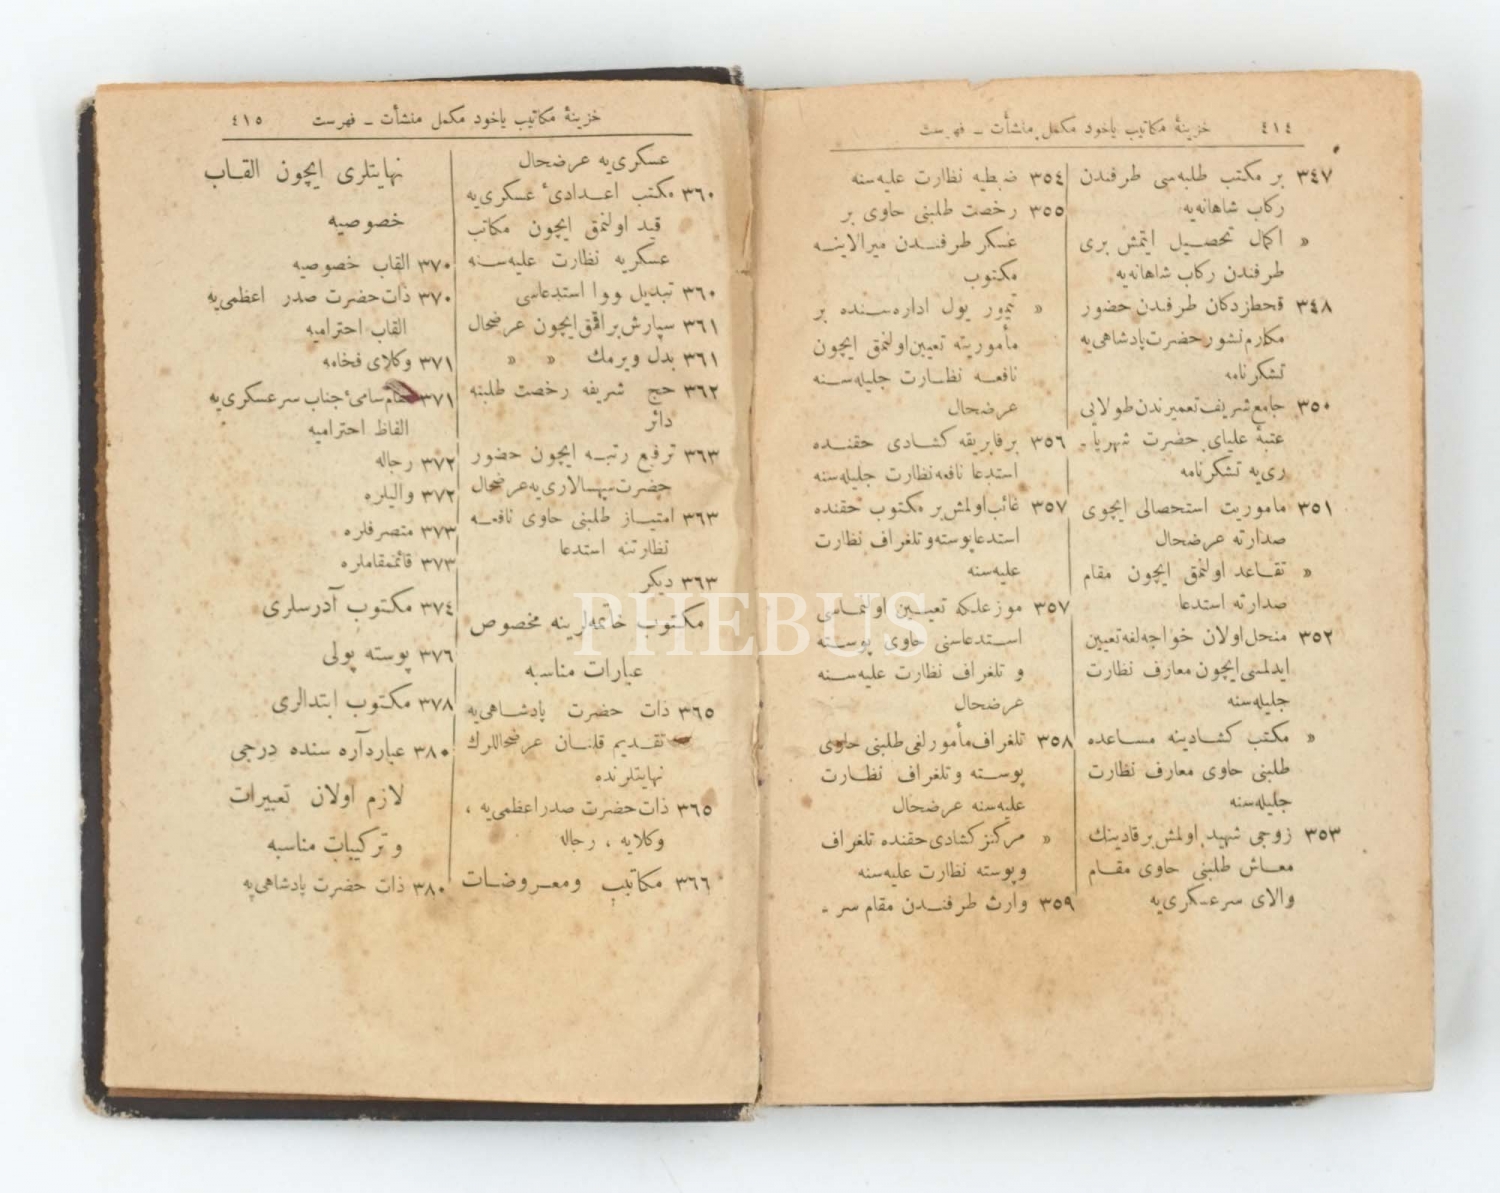 ٤١٤ خزينهٔ مكاتيب ياخود مكمل منشأت ـ فهرست
٣٤٧ بر مكتب طلبه‌سی طرفندن
ركاب شاهانه‌يه
» اكمال تحصيل ايتمش بری
طرفندن ركاب شاهانه‌يه
٣٤٨ قحطزدكان طرفندن حضور
مكارم‌نشور حضرت پادشاهی‌يه
تشكرنامه
٣٥٠ جامع شريف تعميرندن طولايی
عتبهٔ عليای حضرت شهريا‌ـ
ری‌يه تشكرنامه
٣٥١ ماموريت استحصالی ايچوی
صدارته عرضحال
» تقاعد اولنمق ايچون مقام
صدارته استدعا
٣٥٢ منحل اولان خواجه‌لغه تعيين
ايدلمسی ايچون معارف نظارت
جليله‌سنه
» مكتب كشادينه مساعده
طلبنی حاوی معارف نظارت
جليله‌سنه
٣٥٣ زوجی شهيد اولمش بر قادينك
معاش طلبنی حاوی مقام
والای سرعسكری‌يه
٣٥٤ ضبطيه نظارت عليه‌سنه
٣٥٥ رخصت طلبنی حاوی بر
عسكر طرفندن ميرالاينه
مكتوب
» تيمور يول اداره‌سنده بر
مأموريته تعيين اولنمق ايچون
نافعه نظارت جليله‌سنه
عرضحال
٣٥٦ برفابريقه كشادی حقنده
استدعا نافعه نظارت جليله‌سنه
٣٥٧ غائب اولمش بر مكتوب حقنده
استدعا پوسته و تلغراف نظارت
عليه‌سنه
٣٥٧ موزعلكه تعيين اولنماسی
استدعاسنی حاوی پوسته
و تلغراف نظارت عليه‌سنه
عرضحال
٣٥٨ تلغراف مأمورلغی طلبنی حاوی
پوسته و تلغراف نظارت
عليه‌سنه عرضحال
» مركز كشادی حقنده تلغراف
وپوسته نظارت عليه‌سنه
٣٥٩ وارث طرفندن مقام سر ـ
خزينهٔ مكاتيب ياخود مكمل منشأت ـ فهرست ٤١٥
عسكری‌يه عرضحال
٣٦٠ مكتب اعدادیٔ عسكری‌يه
قيد اولنمق ايچون مكاتب
عسكريه نظارت عليه‌سنه
٣٦٠ تبديل هوا استدعاسی
٣٦١ سپارش براقمق ايچون عرضحال
٣٦١ بدل ويرمك » »
٣٦٢ حج شريفه رخصت طلبنه
دائر
٣٦٣ ترفيع رتبه ايچون حضور
حضرت سپهسالاری‌يه عرضحال
٣٦٣ امتياز طلبنی حاوی نافعه
نظارتنه استدعا
٣٦٣ ديكر
مكتوب خاتمه‌لرينه مخصوص
عبارات مناسبه
٣٦٥ ذات حضرت پادشاهی‌يه
تقديم قلنان عرضحاللرك
نهايتلرنده
٣٦٥ ذات حضرت صدراعظمی‌يه ،
وكلايه ، رجاله
٣٦٦ مكاتيب ومعروضات
نهايتلری ايچون القاب
خصوصيه
٣٧٠ القاب خصوصيه
٣٧٠ ذات حضرت صدر اعظمی‌يه
القاب احتراميه
٣٧١ وكلای فخامه
٣٧١ مقام سامیٔ جناب سرعسكری‌يه
الفاظ احتراميه
٣٧٢ رجاله
٣٧٢ واليلره
٣٧٣ متصرفلره
٣٧٣ قائمقاملره
٣٧٤ مكتوب آدرسلری
٣٧٦ پوسته پولی
٣٧٨ مكتوب ابتدالری
٣٨٠ عبارد آره سنده درجی
لازم اولان تعبيرات
و تركيبات مناسبه
٣٨٠ ذات حضرت پادشاهی‌يه
PHEBUS